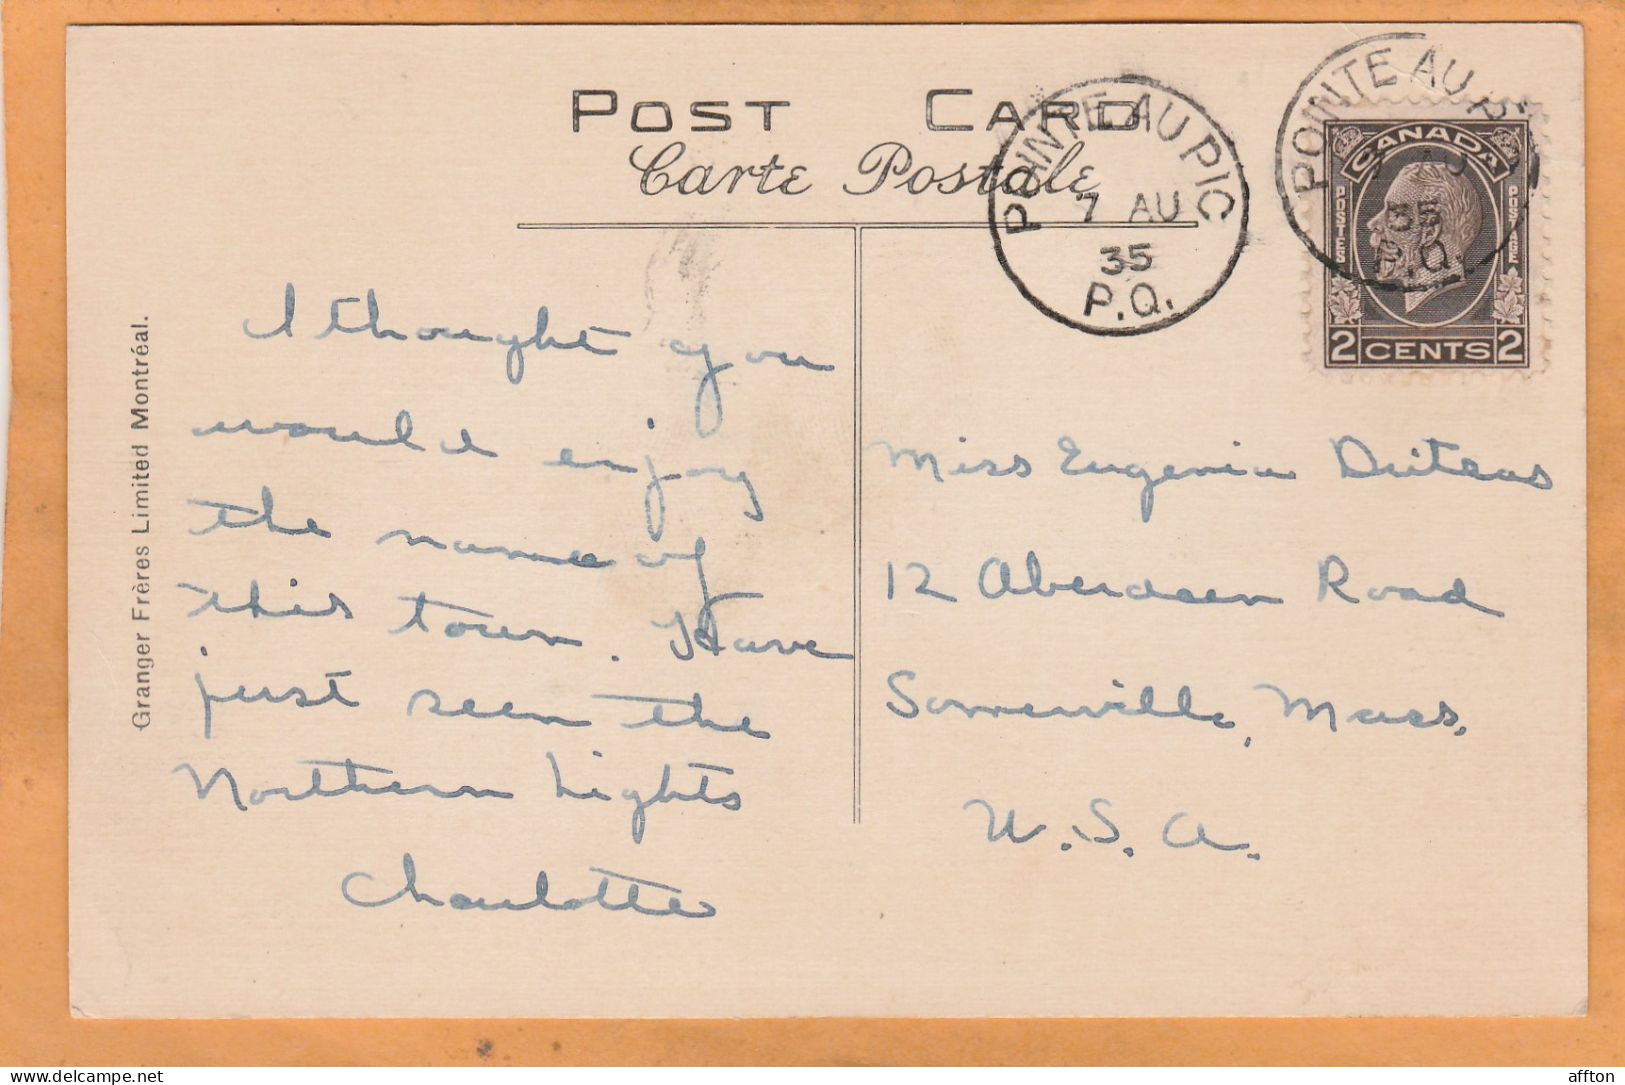 POST CARD
Carte Postale
POINTE AU PIC
7 AU
35
P.Q.
POINTE AU P
AU
35
P.Q.
CANADA
POSTES
POSTAGE
2 CENTS 2
Granger Frères Limited Montréal.
I thought you
would enjoy
the name of
this town. Have
just seen the
Northern Lights
Charlotte
Miss Eugenia
12 Aberdeen Road
Somerville, Mass.
U.S.A.
affton